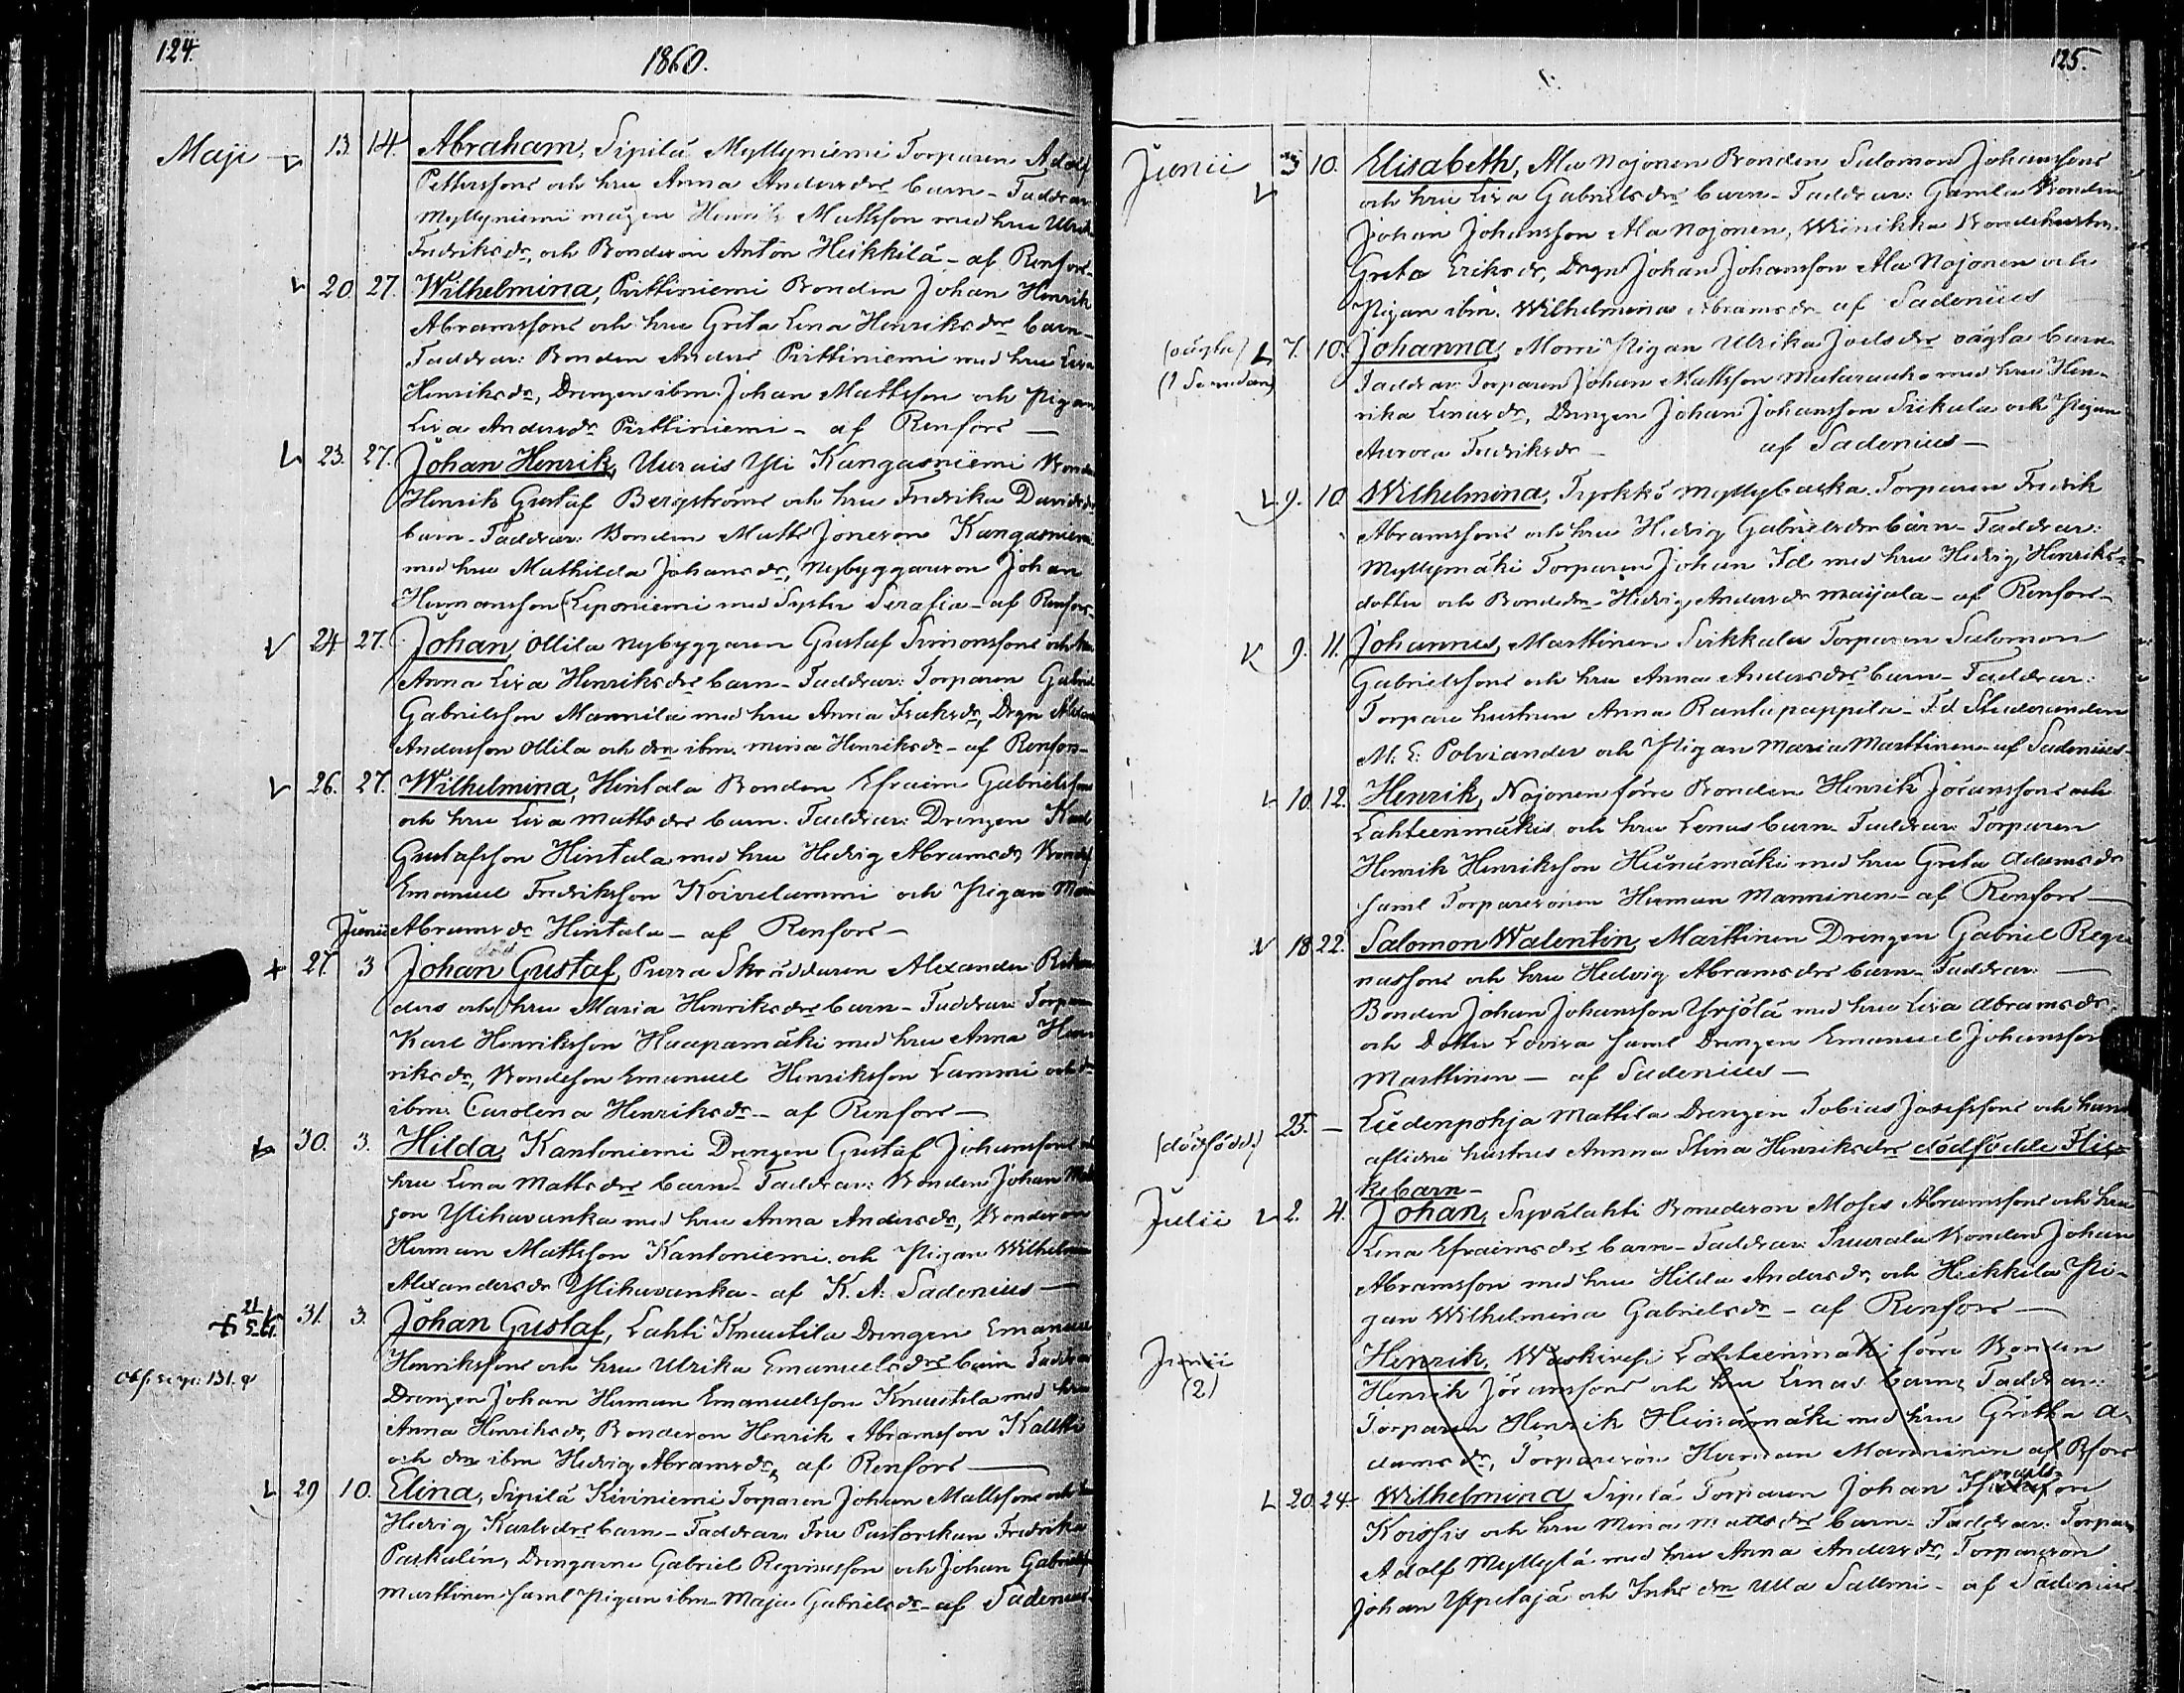 124.
1860.
Maji 13. 14. Abraham, Sipilä Myllyniemi Torparen Adolf
Petterssons och hru Anna Andersdrs barn - Faddrar
Myllyniemi mågen Henrik Mattsson med hru Ulrika
Fredriksdr, och Bondeson Anton Heikkilä - af Renfors -
20. 27. Wilhelmina, Pirttiniemi Bonden Johan Henrik
Abramssons och hru Greta Lena Henriksdrs barn -
Faddrar: Bonden Anders Pirttiniemi med hru Lisa
Henriksdr, Drengen ibm. Johan Mattsson och Pigan
Lisa Andersdr Pirttiniemi - af Renfors -
23. 27. Johan Henrik, Uurais Yli Kangasniemi Bonden
Henrik Gustaf Bergströms och hru Fredrika Davidsdrs
barn - Faddrar: Bonden Matts Joneson Kangasniemi
med hru Mathilda Johansdr, Nybyggareson Johan
Hermansson Leponiemi med Syster Serafia - af Renfors -
24 27. Johan, Ollila nybyggaren Gustaf Simonssons och hru
Anna Lisa Henriksdrs barn - Faddrar: Torparen Gabriel
Gabrielsson Mannila med hru Anna Isaksdr, Drgn
Andersson Ollila och drn ibm. mina Henriksdr - af Renfors -
26. 27. Wilhelmina, Hintala Bonden Efraim Gabrielssons
och hru Lisa Mattsdrs barn. Faddrar: Drengen Karl
Gustafsson Hintala med hru Hedvig Abramsdr,
Emanuel Fredriksson Koivulammi och Pigan
Junii Abramsdr Hintala - af Renfors -
död
27. 3 Johan Gustaf, Purra Skräddaren Alexander
ders och hru Maria Henriksdrs barn - Faddrar: Torparen
Karl Henriksson Haapamäki med hru Anna Hen
riksdr, Bondeson Emanuel Henriksson Lammi och dr
ibm. Carolina Henriksdr - af Renfors -
30. 3. Hilda, Kantoniemi Drengen Gustaf Johanssons
hru Lena Mattsdrs barn - Faddrar: Bonden Johan Mat
son Ylihavanka med hru Anna Andersdr, Bondeson
Herman Mattsson Kantoniemi och Pigan Wilhelmina
Alexandersdr Ylihavanka - af K. A. Sadenius -
21/5 61. 31. 3. Johan Gustaf, Lahti Knuutila Drengen Emanuel
Henrikssons och hru Ulrika Emanuelsdrs barn Faddrar
Obs. se pg: 131. Drengen Johan Herman Emanuelsson Knuutila med hru
Anna Henriksdr, Bondeson Henrik Abramsson
och drn ibm Hedvig Abramsdr, af Renfors -
29 10. Elina, Sipilä Kiviniemi Torparen Johan Mattssons och
Hedvig Karlsdrs barn - Faddrar: Fru Pastorskan Fredrika
Paskalin, Drengarne Gabriel Reginusson och Johan
Marttinen samt Pigan ibm. Maja Gabrielsdr - af Sadenius -
125.
Junii 3 10. Elisabeth, Ala Nojonen Bonden Salomon Johanssons
och hru Lisa Gabrielsdrs barn - Faddrar: Gamla Bonden
Johan Johansson Ala Nojonen, Winikka Bondehustru
Greta Eriksdr, Drgn Johan Johansson Ala Nojonen och
Pigan ibm. Wilhelmina Abramsdr af Sadenius
(oägta) 7. 10. Johanna, Pigan Ulrika Joelsdrs oägta barn
Faddrar: Torparen Johan Mattsson med hru Hen-
rika Enarsdr, Drengen Johan Johansson Siikala och Pigan
Aurora Fredriksdr - af Sadenius -
9. 10 Wilhelmina, Tyrkkö Torparen Fredrik
Abramssons och hru Hedvig Gabrielsdrs barn - Faddrar:
Myllymäki Torparen Johan Id med hru Hedvig Henriks-
dotter och Bondedr Hedvig Andersdr Maijala - af Renfors -
9. 11. Johannes, Marttinen Siikkala Torparen Salomon
Gabrielssons och hru Anna Andersdrs barn - Faddrar:
Torpare hustrun Anna Rantapappila - F.d. Studeranden
M. E. Polviander och Pigan Maria Marttinen - af Sadenius -
10. 12. Henrik, Nojonen förre Bonden Henrik Jöranssons och
Lahteenmäkis och hru Lenas barn Faddrar: Torparen
Henrik Henriksson Heinämäki med hru Greta Adamsdr
samt Torpareson Herman Manninen - af Renfors -
18 22. Salomon Walentin, Marttinen Drengen Gabriel Regi
nussons och hru Hedvig Abramsdrs barn - Faddrar: -
Bonden Johan Johansson Yrjölä med hru Lisa Abramsdr
och Dotter Lovisa samt Drengen Emanuel Johansson
Marttinen - af Sadenius -
25. - Liedenpohja Mattila Drengen Tobias Josefssons och hans
(dödfödd) aflidne hustrus Anna Stina Henriksdrs dödfödde Flic-
kebarn -
Julii 2. 4. Johan, Sysälahti Bondeson Moses Abramssons och hru
Lena Efraimsdrs barn - Faddrar: Suurala Bonden Johan
Abramsson med hru Hilda Andersdr, och Heikkilä Pi-
gan Wilhelmina Gabrielsdr - af Renfors -
Junii Henrik, Waskivesi Lahteenmäki förre Bonden
(2) Henrik Jöranssons och hru Lenas barn, Faddrar:
Torparen Henrik Heinämäki med hru Gretha A-
damsdr, Torpareson Herman Manninen af Rfors
20. 24 Wilhelmina Sipilä Torparen Johan
Koissis och hru Mina Mattsdrs barn - Faddrar: Torparen
Adolf Myllylä med hru Anna Andersdr, Torpareson
Johan Ypelajä och Inhs drn Ulla Sallmi - af Sadenius